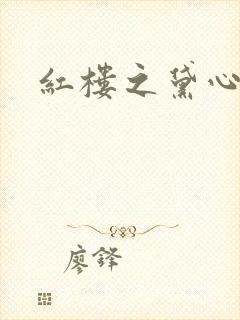 紅樓之黛心
廖鋒